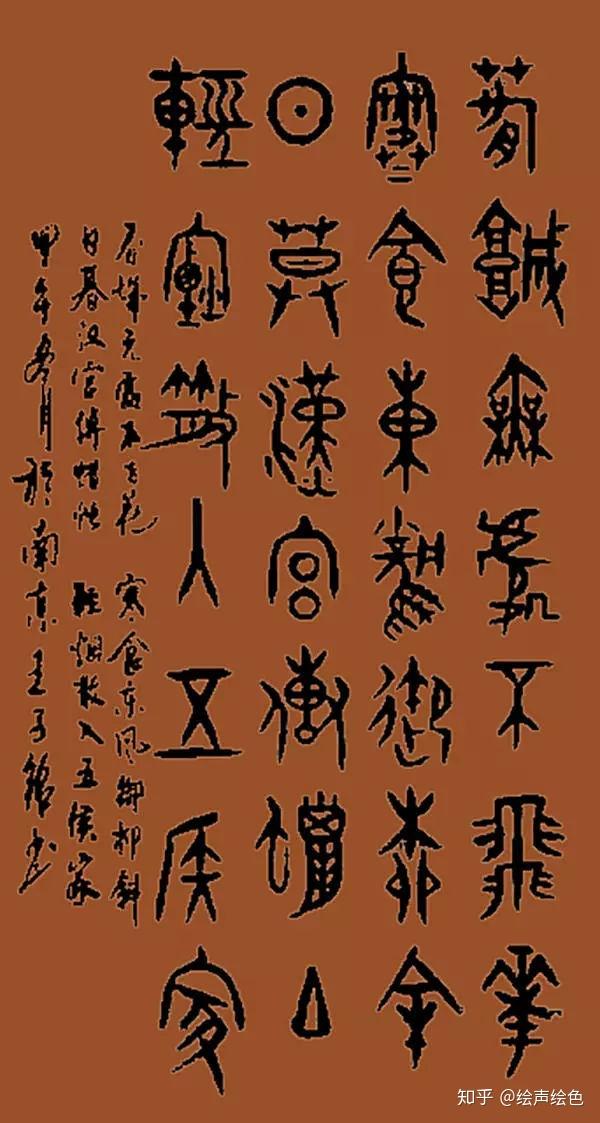 萅城無處不飛華
寒食東風御柳余
日莫漢宮傳蠟
輕煙散入五侯家
春城无處不飛花 寒食东风御柳斜
日暮汉宫傳蜡烛 轻烟散入五侯家
甲午月於南京王子书
知乎 @绘声绘色